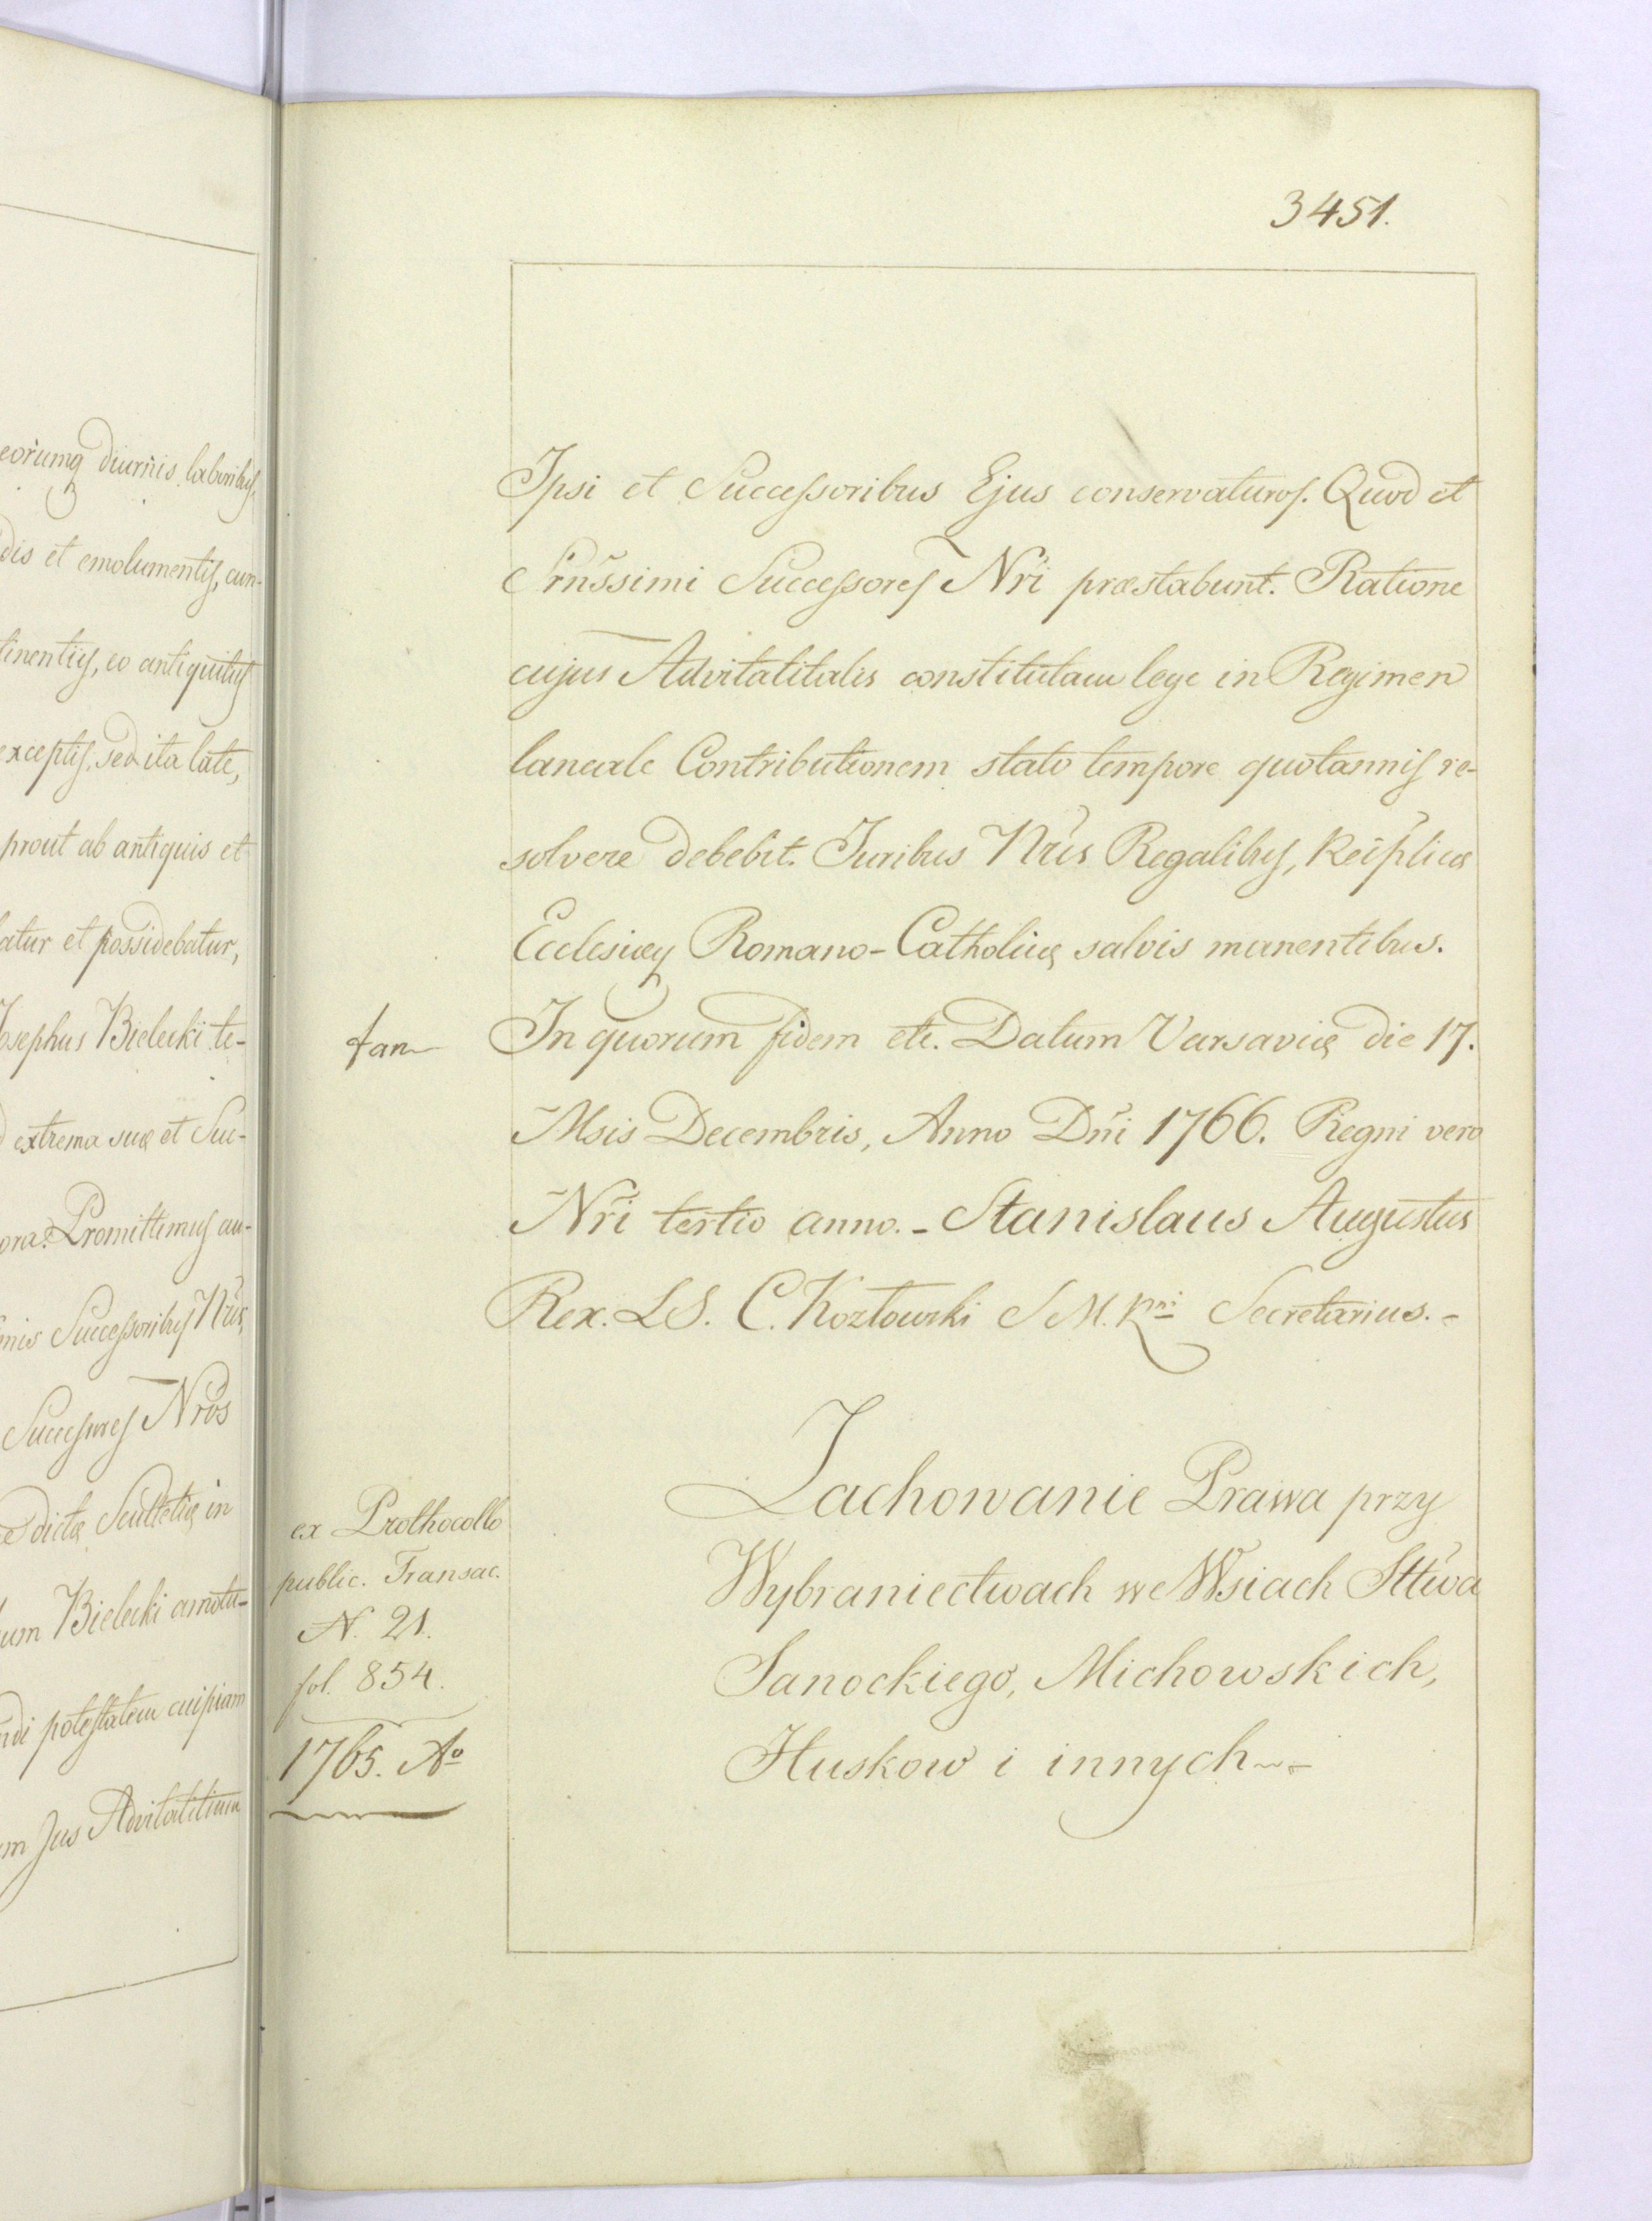 3451.
eorumq diurnis laboribus,
dis et emolumentis, cun-
tinentiis, eo antiquitus
exceptis, sed ita late,
prout ab antiquis et
atur et possidebatur,
Josephus Bielecki te-
extrema suæ et Suc-
ora. Promittimus au-
mis Successoribus Nris,
Successores Nros
dictæ Scultetiæ in
um Bielecki amotu-
ndi potestatem cuipiam
m Jus Advitalitium
Ipsi et Successoribus Ejus conservaturos. Quod et
Srnssimi Successores Nri præstabunt. Ratione
cujus Advitalitalis constitutam lege in Regimen
laneale Contributionem stato tempore quotannis re-
solvere debebit. Juribus Nris Regalibus, Reiplicæ
Ecclesiæq Romano-Catholicæ salvis manentibus.
In quorum fidem etc. Datum Varsaviæ die 17.
Msis Decembris, Anno Dni 1766. Regni vero
Nri tertio anno. - Stanislaus Augustus
Rex. LS. C. Kozłowski S M. Rni Secretarius. -
ex Prothocollo
public. Transac.
N. 21.
fol. 854.
1765. Ao
Zachowanie Prawa przy
Wybraniectwach we Wsiach Sttwa
Sanockiego, Michowskich,
Huskow i innych -